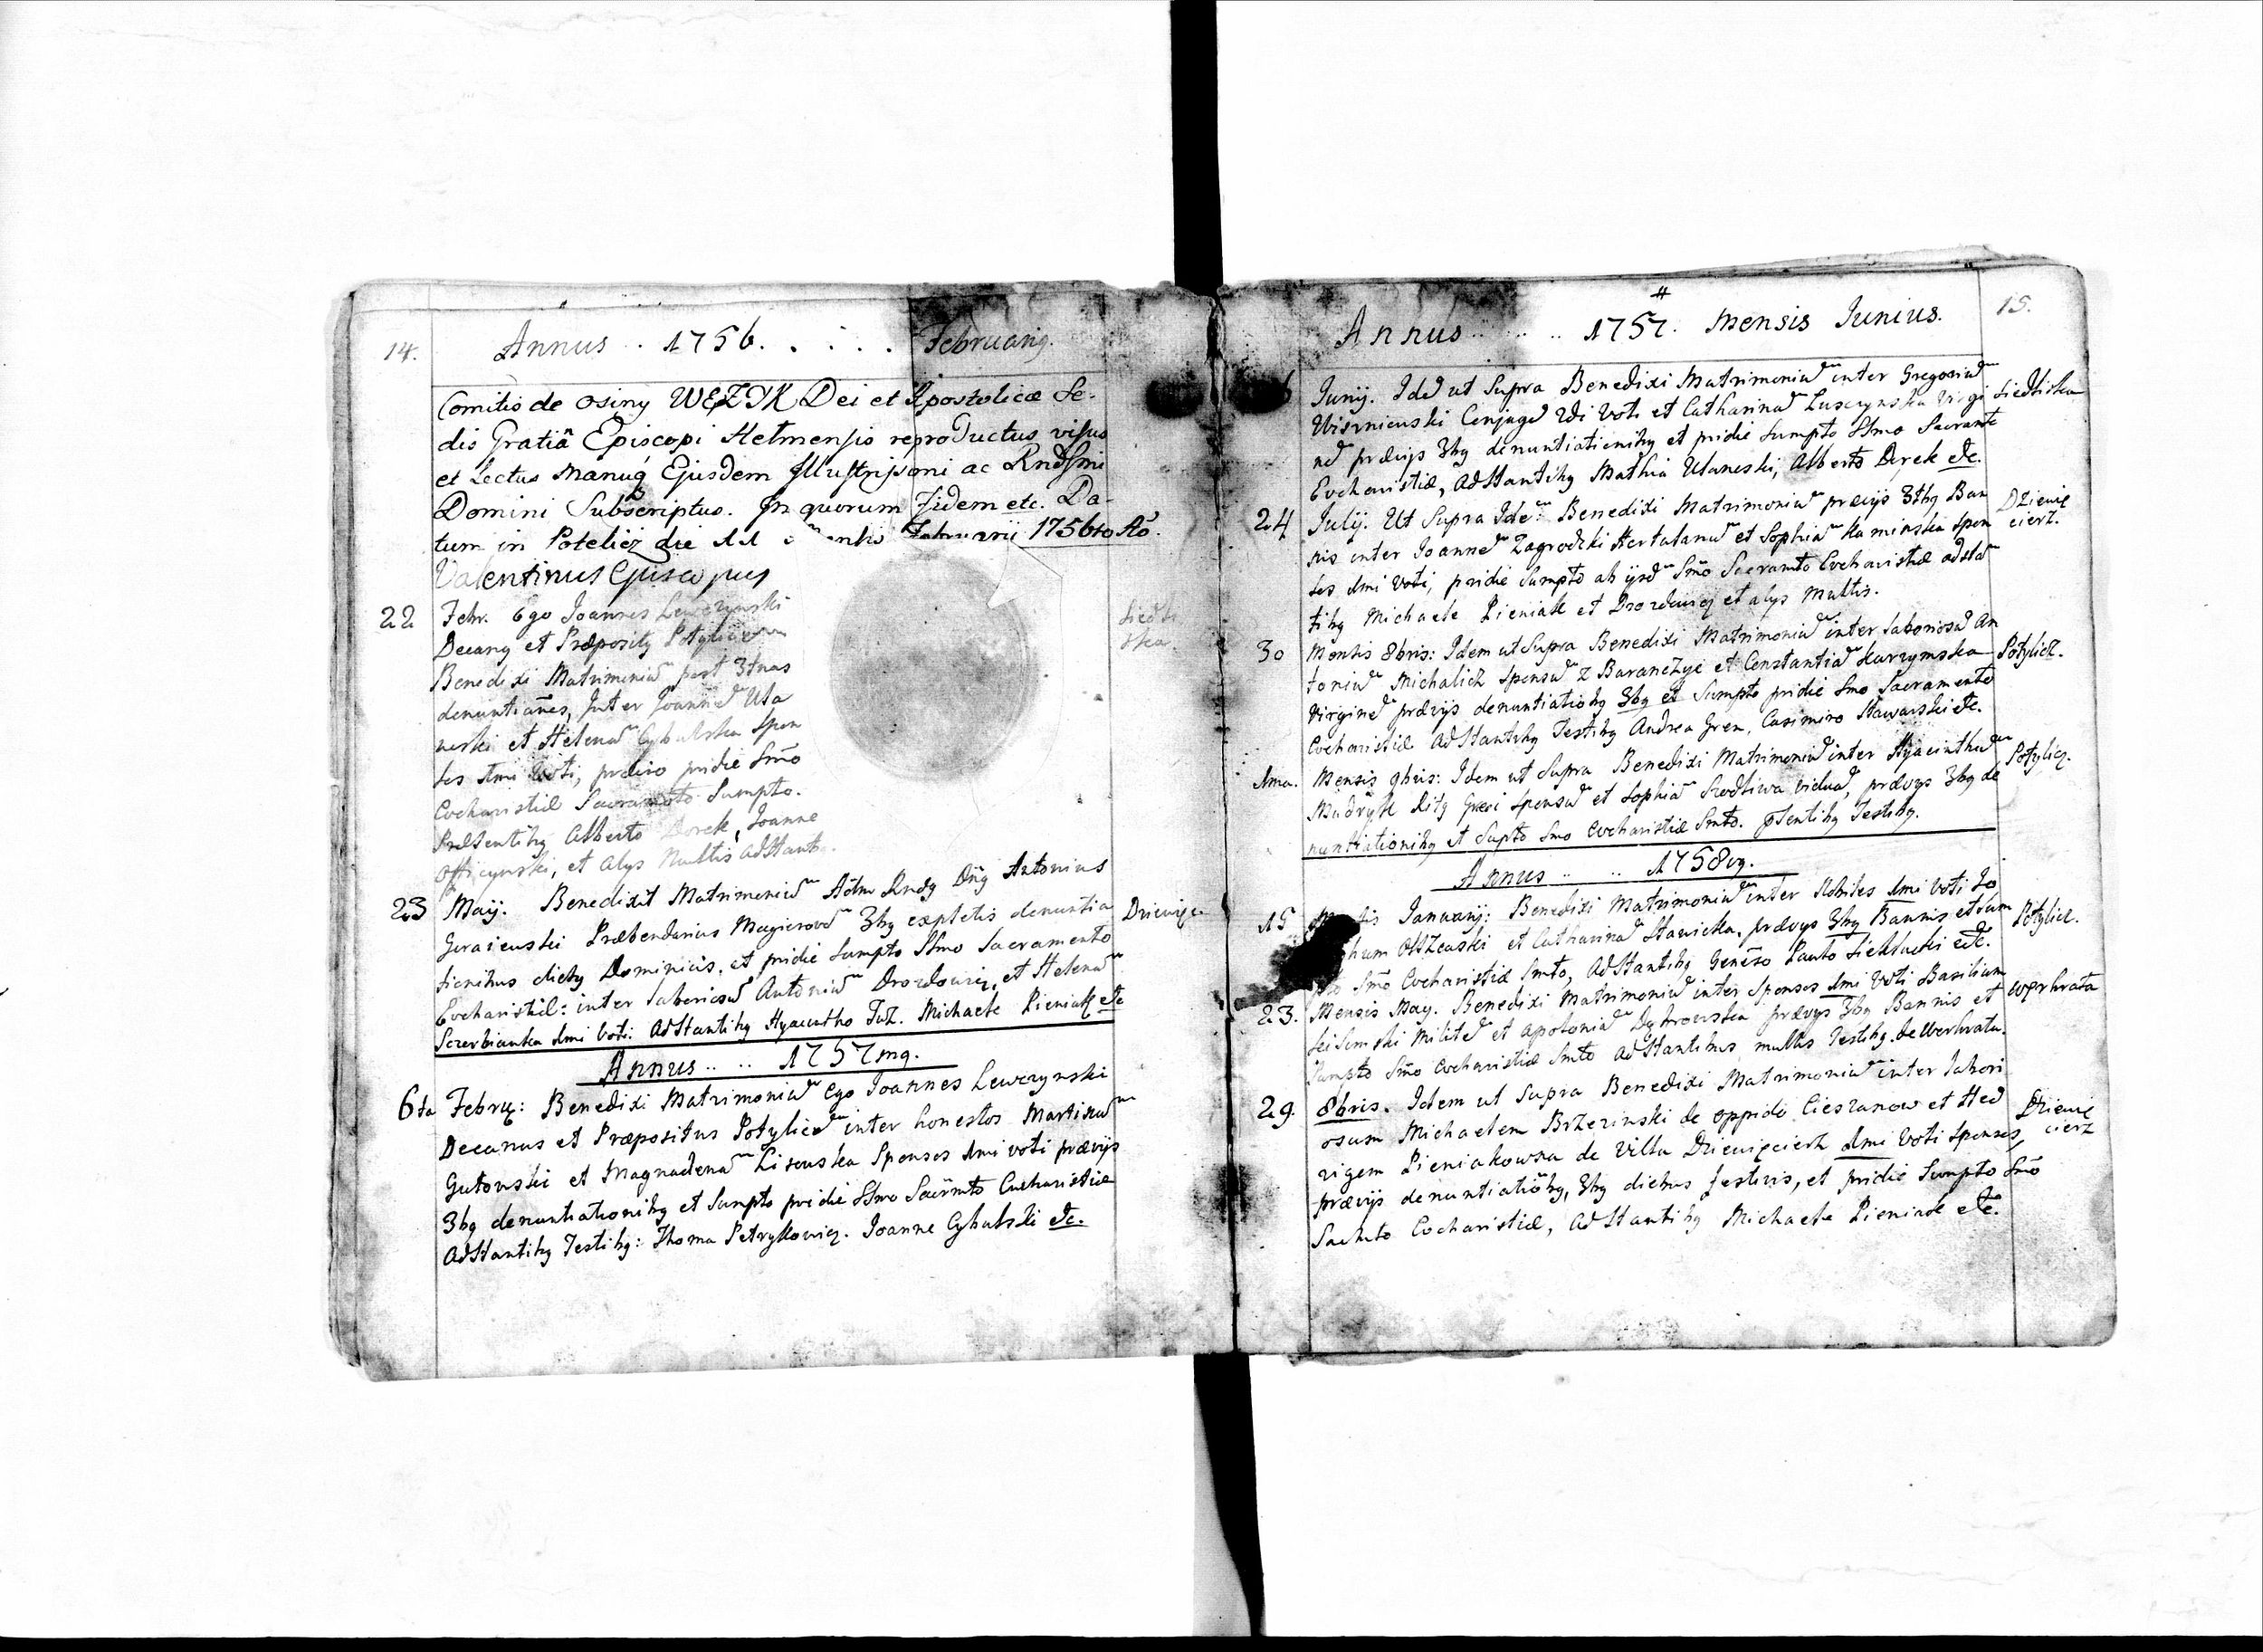 14.
Annus . 1756. . . . . Februariy.
Comitis de Osiny WĘŻYK Dei et Apostolicæ Se-
dis Gratiâ Episcopi Hełmensis reproductus visus
et Lectus manuq́ Ejusdem Illustrissimi ac Rndssmi
Domini Subscriptus. In quorum Fidem etc. Da-
tum in Potelicz die 11 Februarii 1756to Ao.
Valentinus Episcopus
22 Febr. Ego Joannes Lewczynski
Decany et Præposity Potylicen
Benedixi Matrimoniū post 3tnas
denuntiañes, Inter Joannē Ula
newski et Helenā Cybulska Spon
ses 1mi Voti, prævio pridie Smo
Eucharistiæ Sacramēto Sumpto.
Præsentiby Alberto Dorek, Joanne
et Alys Multis adstantib.
Siedli
ska.
23 Maij. Benedixit Matrimoniū Adm Rndy Dny Antonius
Gurajewski Præbendarius Magierovū 3by expletis denuntia
tionibus dieby Dominicis, et pridie Sumpto SSmo Sacramento
Eucharistiæ: inter Laboriosū Antoniū Drozdowicz, et Helenā
Szczerbianka 1mi Voti. AdStantiby Hyacintho Juz. Michaele Pieniak etc
Dziewięc
Annus .. .. 1757mq.
6ta Febry: Benedixi Matrimoniū Ego Joannes Lewczynski
Decanus et Præpositus Potylicē inter honestos Martinū
Gutowski et Magnadenā Lisowska Sponsos 1mi voti prævijs
3by denuntiationiby et Sumpto pridie SSmo Sacrmto Eucharistiæ
AdStantiby Testiby: Thoma Petrykowicz. Joanne Cybulski etc.
Annus .. .. 1757. Mensis Junius.
15.
6 Junij. Idē ut Supra Benedixi Matrimoniū inter Gregoriū
Wisznieuski Conjugē 2di Voti et Catharinā Luszczynska Virgi
nē prævijs 3by denuntiationiby et pridie Sumpto SSmo Sacramēto
Eucharistiæ, AdStantiby Mathia Ulaneski, Alberto Derek etc.
Siedliska
24 July. Ut Supra Idē. Benedixi Matrimoniū prævijs 3tby Ban
nis inter Joannē Zagrodzki Hertulanū et Sophiā Kaminska Spon
ses 1mi Voti, pridie Sumpto ab ijsdē Smo Sacramēto Eucharistiæ adstā
tiby Michaele Pieniak et Drozdowicz et alys Multis.
Dziewię
cierz.
30 Mensis 8bris: Idem ut Supra Benedixi Matrimoniū inter Laboriosū An
toniū Michalicz Sponsū z Baranczyc et Constantiā Kurzymska
Virginē prævijs denuntiatioby 3by et Sumpto pridie Smo Sacramento
Eucharistiæ AdStantiby Testiby Andrea Gren, Casimiro Stawarski etc.
Potylicz.
1ma. Mensis 9bris: Idem ut Supra Benedixi Matrimoniū inter Hyacinthū
Mudryk Rity Græci Sponsū et Sophiā Szedliwa viduā, prævijs 3by de
nuntiationiby et Supto Smo Eucharistiæ Smto. pSentiby Testiby.
Potylicz.
Annus .. .. 1758vy.
15 Januarij: Benedixi Matrimoniū inter Nobiles 1mi Voti Jo
et Catharinā Stawicka. prævijs 3by Bannis et sum
pto Smo Eucharistiæ Smto, AdStantiby Genēso Paulo etc.
Potylicz.
23. Mensis May. Benedixi Matrimoniū inter Sponsos 1mi Voti Basilium
militē et Apoloniā Dąbrowska prævijs 3by Bannis et
Sumpto Smo Eucharistiæ Smto adStantibus multis Testiby de Werhrata.
Werhrata
29. 8bris. Idem ut Supra Benedixi Matrimoniū inter Labori
osum Michaelem Brzezinski de oppido Cieszanow et Hed
vigem Pieniakowna de Villa Dziewięcierz 1mi Voti Sponsos,
prævijs denuntiatioby, 3by diebus festivis, et pridie Sumpto Smo
Sacmto Eucharistiæ, AdStantiby Michaele Pieniak etc.
Dziewię
cierz